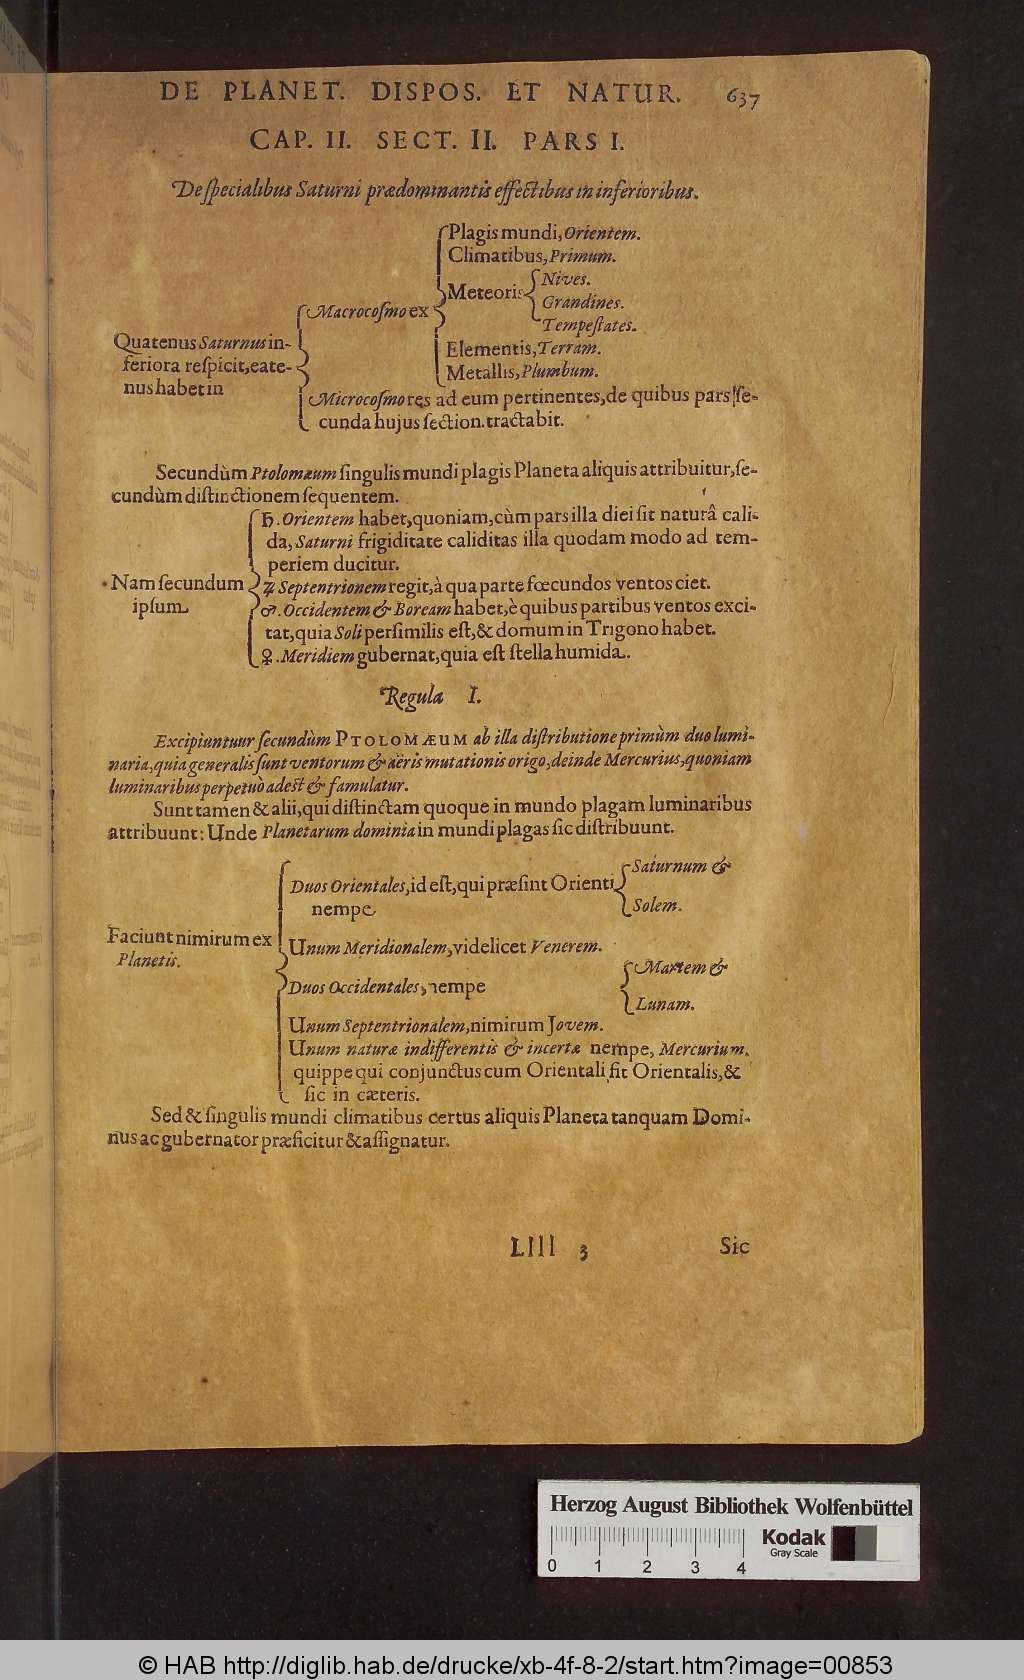 DE PLANET. DISPOS. ET NATUR. 637
CAP. II. SECT. II. PARS I.
De specialibus Saturni prædominantis effectibus in inferioribus.
Plagis mundi, Orientem.
Climatibus, Primum.
Meteoris
Nives.
Grandines.
Tempestates.
Macrocosmo ex
Elementis, Terram.
Metallis, Plumbum.
Quatenus Saturnus in-
feriora respicit, eate-
nus habet in
Microcosmo res ad eum pertinentes, de quibus pars se-
cunda hujus section. tractabit.
Secundùm Ptolomæum singulis mundi plagis Planeta aliquis attribuitur, se-
cundùm distinctionem sequentem.
Nam secundum
ipsum
♄. Orientem habet, quoniam, cùm pars illa diei sit naturâ cali-
da, Saturni frigiditate caliditas illa quodam modo ad tem-
periem ducitur.
♃ Septentrionem regit, à qua parte fœcundos ventos ciet.
♂. Occidentem & Boream habet, è quibus partibus ventos exci-
tat, quia Soli persimilis est, & domum in Trigono habet.
♀. Meridiem gubernat, quia est stella humida.
Regula I.
Excipiuntuur secundùm PTOLOMÆUM ab illa distributione primùm duo lumi-
naria, quia generalis sunt ventorum & aëris mutationis origo, deinde Mercurius, quoniam
luminaribus perpetuo adest & famulatur.
Sunt tamen & alii, qui distinctam quoque in mundo plagam luminaribus
attribuunt: Unde Planetarum dominia in mundi plagas sic distribuunt.
Faciunt nimirum ex
Planetis.
Duos Orientales, id est, qui præsint Orienti
nempe
Saturnum &
Solem.
Unum Meridionalem, videlicet Venerem.
Duos Occidentales, nempe
Martem &
Lunam.
Unum Septentrionalem, nimirum Jovem.
Unum naturæ indifferentis & incertæ nempe, Mercurium.
quippe qui conjunctus cum Orientali fit Orientalis, &
sic in cæteris.
Sed & singulis mundi climatibus certus aliquis Planeta tanquam Domi-
nus ac gubernator præficitur & assignatur.
Llll 3 Sic
Herzog August Bibliothek Wolfenbüttel
Kodak
Gray Scale
0 1 2 3 4
© HAB http://diglib.hab.de/drucke/xb-4f-8-2/start.htm?image=00853